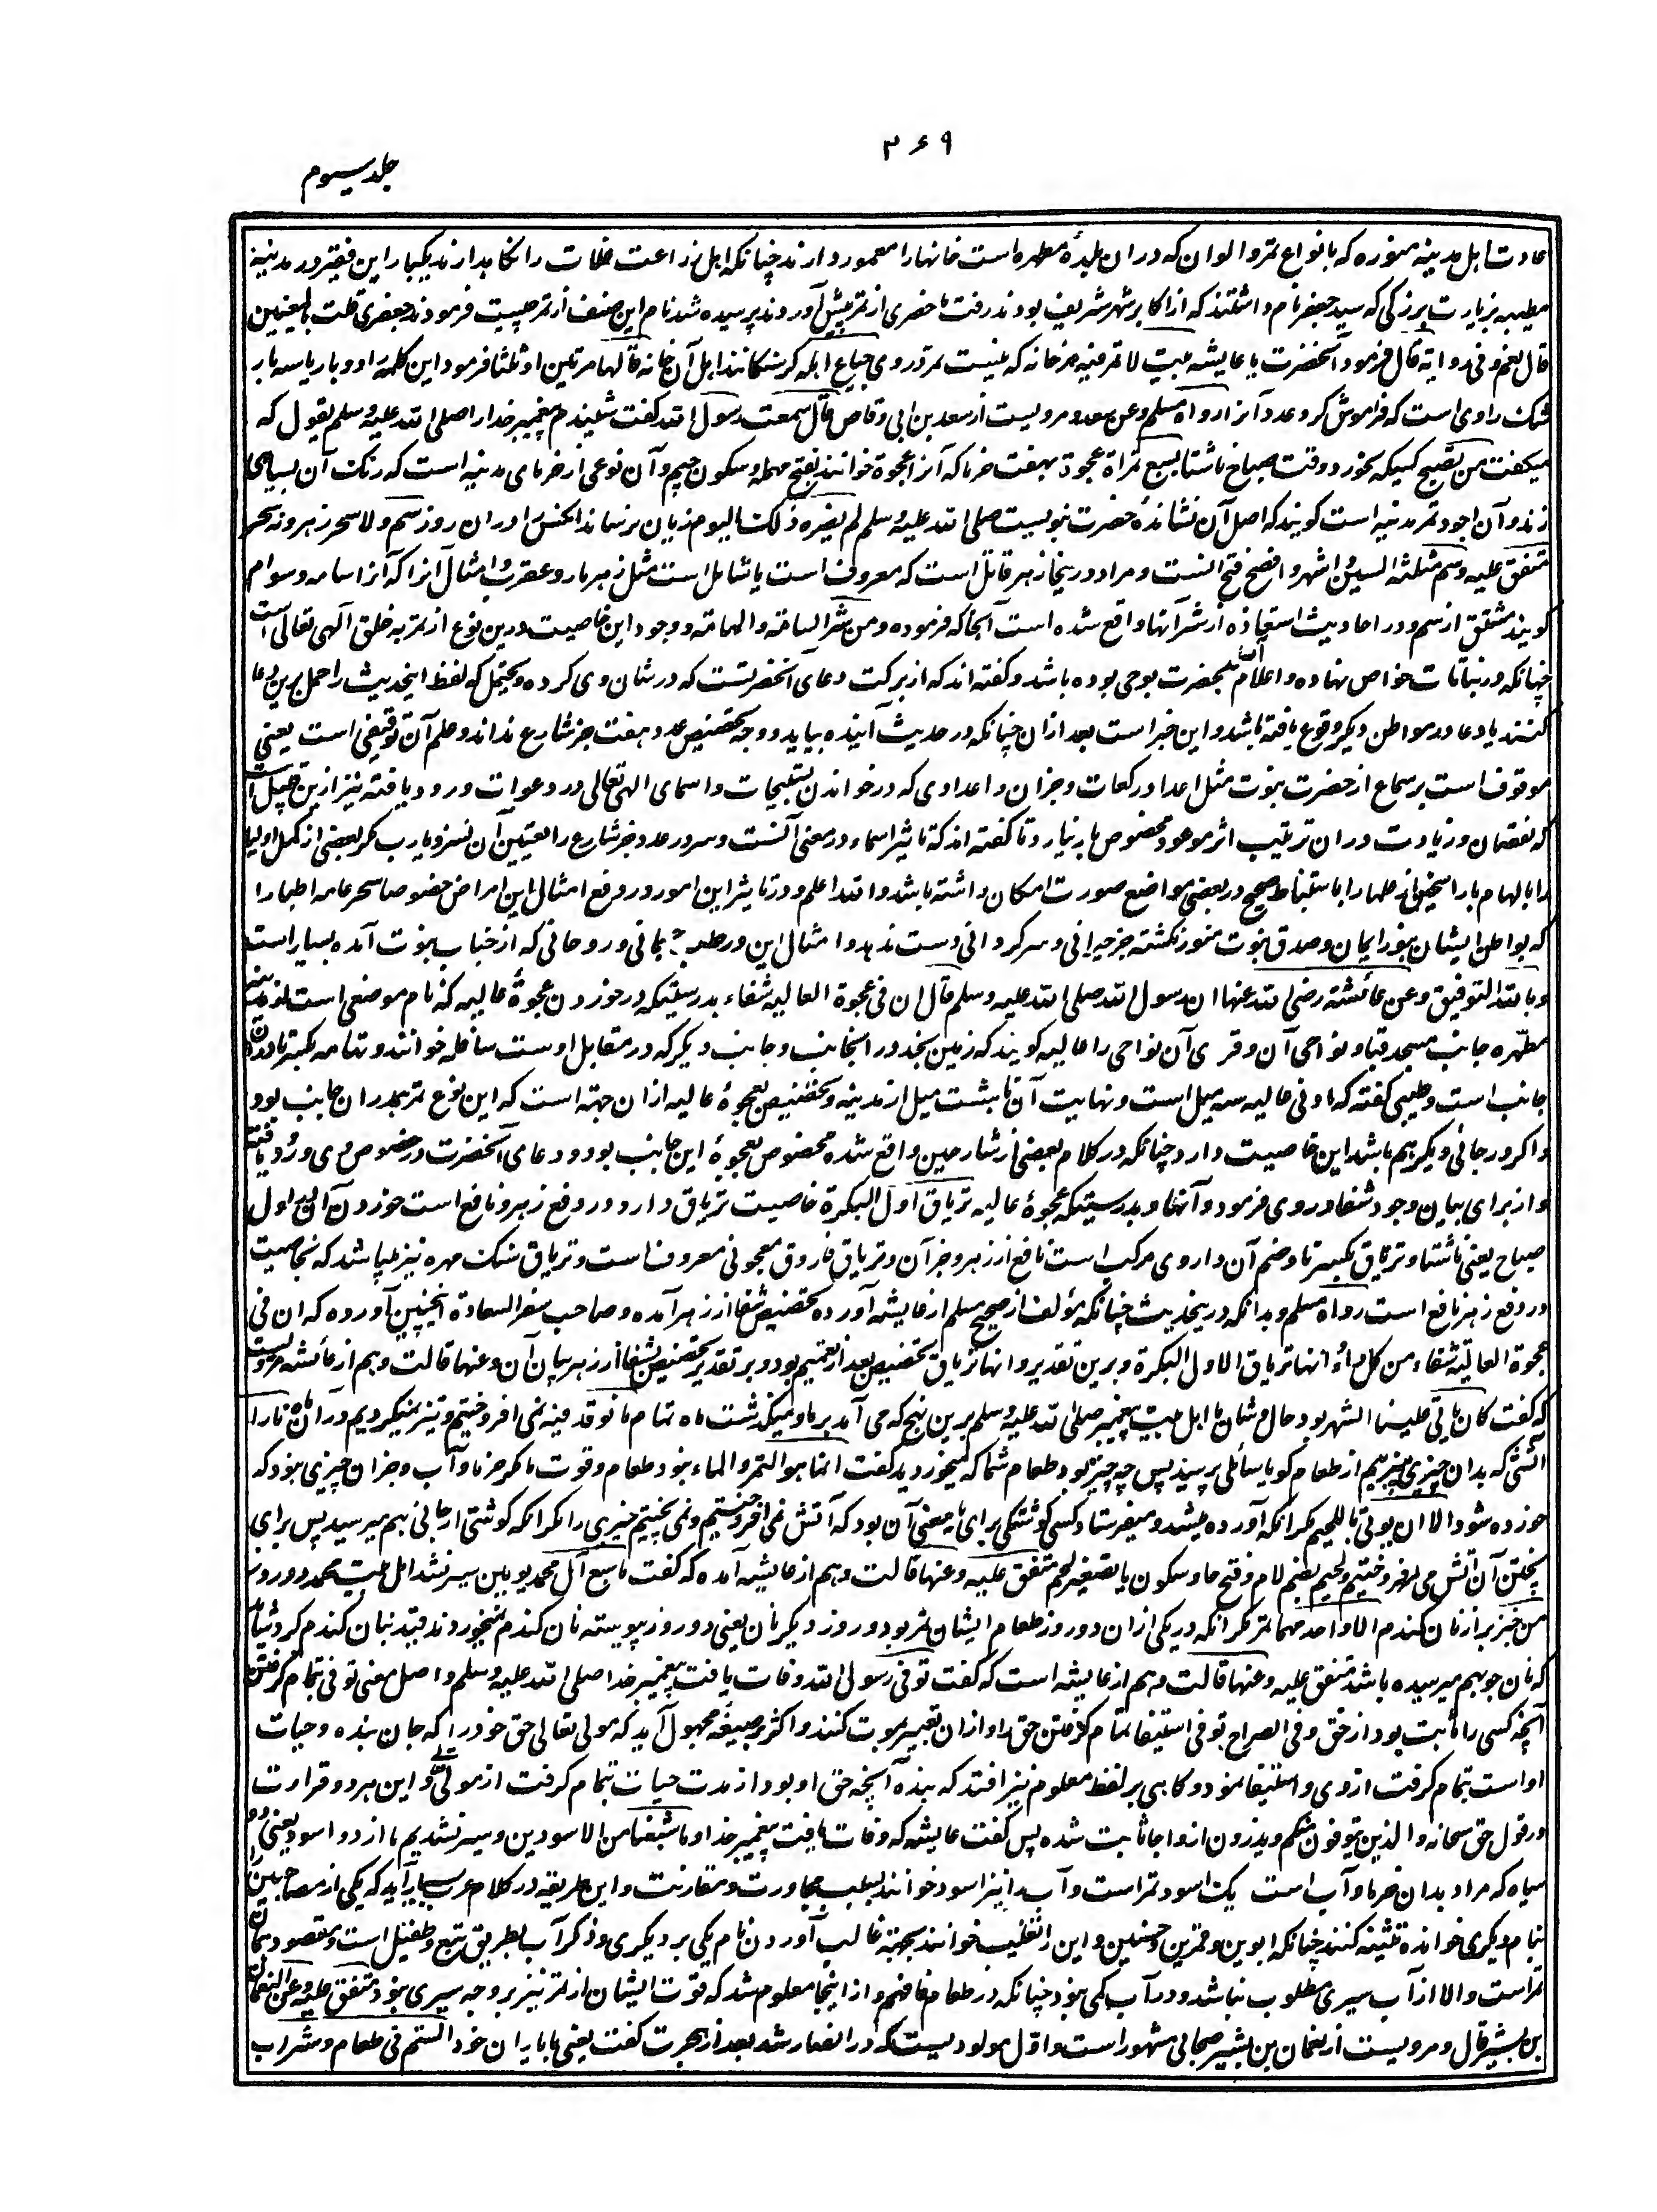 ۳۶۹
جلد سیوم
عادت اهل مدینه منوره که بانواع تمر و الوان که در ان بلدهٔ مطهره است خانها را معمور دارند چنانکه اهل زراعت غلات را نگاهدارند یکبار این فقیر در مدینه
مطیبه بزیارت بزرگی که سید جعفر نام داشتند که از اکابر شهر شریف بودند رفت ما حضری از تمر پیش آوردند پرسیده شد نام این صنف از تمر چیست فرمودند جعفری قلت بلعنین
قال نعم و فی روایة قال فرمود آنحضرت یا عایشه بیت لا تمر فیه هر خانه که نیست تمر در وی جیاع اهله گرسنگانند اهل آن خانه قالها مرتین او ثلثا فرمود این کلمه را دو بار یا سه بار
شک راوی است که فراموش کرد عدد آنرا رواه مسلم وعن سعد و مرویست از سعد بن ابی وقاص قال سمعت رسول الله گفت شنیدم پیغمبر خدا را صلی الله علیه وسلم یقول که
میگفت من تصبح کسیکه بخورد وقت صباح ناشتا بسبع تمراة عجوة بهفت خرما که آنرا عجوة خوانند بفتح مهمله و سکون جیم و آن نوعی از خرمای مدینه است که رنگ آن بسیاهی
زند و آن اجود تمر مدینه است گویند که اصل آن نشاندهٔ حضرت نبویست صلی الله علیه وسلم لم یضره ذلک الیوم زیان نرساند آنکس را دران روز سم ولا سحر زهر و نه سحر
متفق علیه و سم مثلثه السین و اشهر و افصح فتح انست و مراد درینجا زهر قاتل است که معروف است یا شامل است مثل زهر مار و عقرب و امثال آنرا که آنرا سامه و سوام
گویند مشتق از سم و در احادیث استعاذه از شر آنها واقع شده است آنجا که فرموده ومن شر السامة والهامة و وجود این خاصیت درین نوع از تمر به خلق آلهی تعالی است
چنانکه در نباتات خواص نهاده و اعلام آن بحضرت بوحی بوده باشد و گفته اند که از برکت دعای آنحضرتست که در شان وی کرده و یحتمل که لفظ اینحدیث را حمل برین دعا
کنند یا دعا در مواطن دیگر وقوع یافته باشد و این خبر است بعد ازان چنانکه در حدیث آینده بیاید و وجه تخصیص عدد هفت جز شارع نداند و علم آن توقیفی است یعنی
موقوف است بر سماع از حضرت نبوت مثل اعداد رکعات و جزان و اعدادی که در خواندن تسبیحات و اسمای الهی تعالی در دعوات ورود یافته نیز ازین قبیل است
که نقصان و زیادت دران ترتیب اثر موعود مخصوص بار نیارد تا گفته اند که تاثیر اسماء در معنی آنست و سر در عدد و جز شارع را تعیین آن نسزد یا رب مگر بعضی از کمل اولیا
را بالهام یا راسخین از علما را باستنباط صحیح در بعضی مواضع صورت امکان داشته باشد والله اعلم و در تاثیر این امور در رفع امثال این امراض خصوصا سحر عامه اطبا را
که بواطن ایشان بنور ایمان و صدق نبوت منور نگشته جز حیرانی و سرگردانی دست ندهد و امثال این در طب جسمانی و روحانی که از جناب نبوت آمده بسیار است
وبالله التوفیق وعن عائشة رضی الله عنها ان رسول الله صلی الله علیه وسلم قال ان فی عجوة العالیه شفاء بدرستیکه در خوردن عجوهٔ عالیه که نام موضعی است از مدینه
مطهره جانب مسجد قبا و نواحی آن و قری آن نواحی را عالیه گویند که زمین نجد در انجانب و جانب دیگر که در مقابل اوست سافله خوانند و تهامه بکسر تا دران
جانب است و طیبی گفته که ادنی عالیه سه میل است و نهایت آن تا هشت میل از مدینه و تخصیص بعجوهٔ عالیه ازان جهته است که این نوع تمر همدران جانب بود
و اگر در جائی دیگر هم باشد این خاصیت دارد چنانکه در کلام بعضی از شارحین واقع شده مخصوص بعجوهٔ این جانب بود و دعای آنحضرت در خصوص وی ورود یافته
و از برای بیان وجود شفا در وی فرمود و آنها و بدرستیکه عجوهٔ عالیه تریاق اول البکرة خاصیت تریاق دارد در رفع زهر و نافع است خوردن آن اول
صباح یعنی ناشتا و تریاق بکسر تا و ضم آن داروی مرکب است نافع از زهر و جز آن و تریاق فاروق معجونی معروف است و تریاق سنگ مهره نیز میباشد که بخاصیت
در دفع زهر نافع است رواه مسلم و بدانکه درینحدیث چنانکه مؤلف از صحیح مسلم از عایشه آورده تخصیص شفا از زهر آمده و صاحب سفر السعادة اینچنین آورده که ان فی
عجوة العالیة شفاء من کل داء وانها تریاق الاول البکرة و برین تقدیر وانها تریاق تخصیص بعد از تعمیم بود و بر تقدیر تخصیص شفا از زهر بیان آن وعنها قالت و هم از عائشه مرویست
که گفت کان یاتی علینا الشهر بود حال و شان ما اهل بیت پیغمبر صلی الله علیه وسلم برین نهج که می آمد بر ما و میگذشت ماه تمام ما نوقد فیه نمی افروختیم و تیز نمیکردیم در ان ماه نارا
آتشی که بدان چیزی بپزیم از طعام گویا سائلی پرسید پس چه چیز بود طعام شما که میخوردید گفت انما هو التمر والماء نبود طعام و قوت ما مگر خرما و آب و جزان چیزی نبود که
خورده شود الا ان یوتی باللحیم مگر انکه آورده میشد و میفرستاد کسی گوشتکی برای ما معنی آن بود که آتش نمی افروختیم و نمی پختیم چیزی را مگر انکه گوشتی از جائی بهم میرسید پس برای
پختن آن آتش می افروختیم و لحیم بضم لام و فتح حا و سکون یا تصغیر لحم متفق علیه وعنها قالت و هم از عایشه آمده که گفت ما شبع آل محمد یومین سیر نشد اهل بیت محمد دو روز
من خبز بر از نان گندم الا واحدهما تمر مگر انکه در یکی ازان دو روز طعام ایشان تمر بود و روز دیگر نان یعنی دو روز پیوسته نان گندم نمیخوردند قید بنان گندم کرد شاید
که نان جو بهم میرسیده باشد متفق علیه وعنها قالت و هم از عایشه است که گفت توفی رسول الله وفات یافت پیغمبر خدا صلی الله علیه وسلم و اصل معنی توفی تمام گرفتن
آنچه کسی را ثابت بود از حق و فی الصراح توفی استیفا تمام گرفتن حق را و ازان تعبیر بموت کنند و اکثر بر صیغهٔ مجهول آید که مولی تعالی حق خود را که جان بنده و حیات
او است بتمام گرفت از وی و استیفا نمود و گاهی بر لفظ معلوم نیز افتد که بنده آنچه حق او بود از مدت حیات بتمام گرفت از مولی تعالی و این هر دو قراءت
در قول حق سبحانه والذین یتوفون منکم ویذرون ازواجا ثابت شده پس گفت عایشه که وفات یافت پیغمبر خدا وما شبعنا من الاسودین و سیر نشدیم ما از دو اسود یعنی دو
سیاه که مراد بدان خرما و آب است یک اسود تمر است و آب را نیز اسود خوانند بسبب مجاورت و مقارنت و این طریقه در کلام عرب بسیار آید که یکی از مصاحبین را
بنام دیگری خوانده تثنیه کنند چنانکه ابوین و قمرین و حسنین و این را تغلیب خوانند بجهته غالب آوردن نام یکی بر دیگری و ذکر آب بطریق تبع و طفیل است و مقصود
تمر است والا از آب سیری مطلوب نباشد و در آب کمی نبود چنانکه در طعام فافهم و از اینجا معلوم شد که قوت ایشان از تمر نیز بر وجه سیری نبود متفق علیه وعن النعمان
بن بشیر قال و مرویست از نعمان بن بشیر صحابی مشهور است و اول مولودیست که در انصار شد بعد از هجرت گفت یعنی با یاران خود الستم فی طعام وشراب